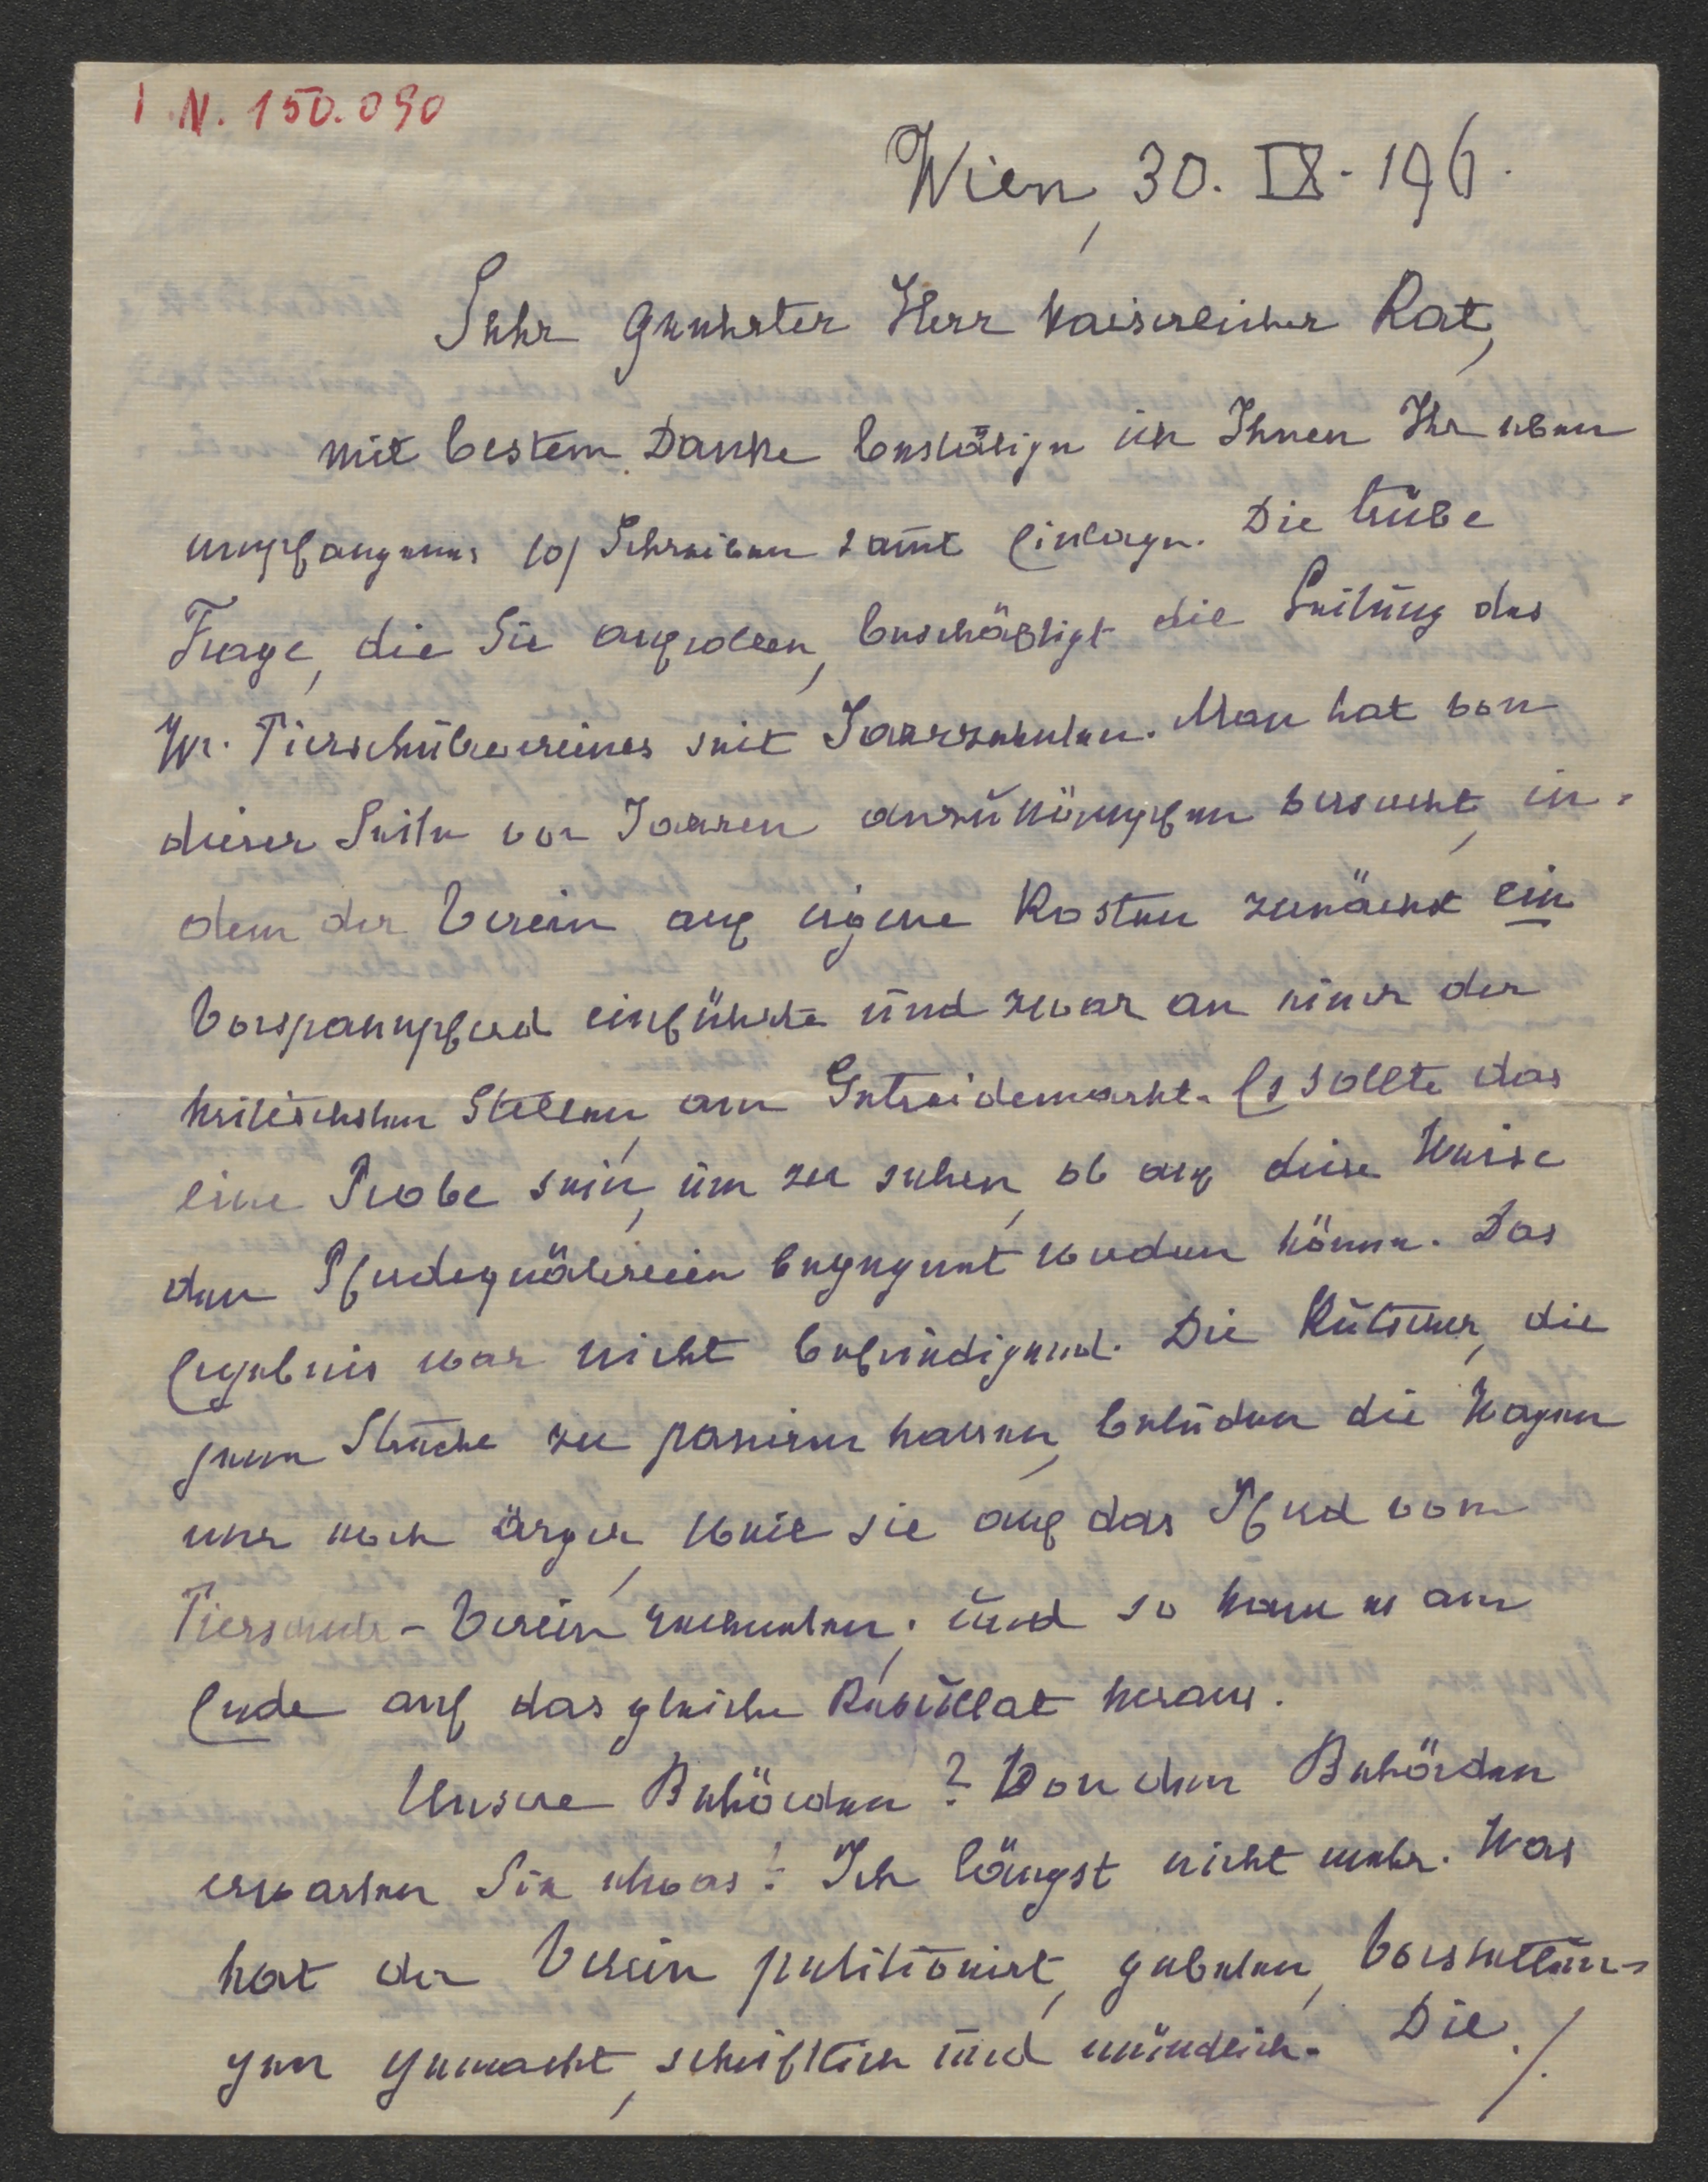 I. N. 150.090
Wien, 30. IX. 196.
Sehr geehrter Herr kaiserlicher Rat,
mit bestem Danke bestätige ich Ihnen Ihr eben
empfangenes Schreiben samt Einlage. Die trübe
Frage, die Sie aufrollen, beschäftigt die Leitung des
Wr. Tierschutzvereines seit Jarzehnten. Man hat von
dieser Seite vor Jaren anzukämpfen versucht, in-
dem der Verein auf eigene Kosten zunächst ein
Vorspannpferd einführte und zwar an einer der
kritischsten Stellen, am Getreidemarkt. Es sollte das
eine Probe sein, um zu sehen, ob auf diese Weise
den Pferdequälereien begegnet werden könne. Das
Ergebnis war nicht befriedigend. Die Kutscher, die
jene Strecke zu passiren hatten, beluden die Wagen
nur noch ärger, weil sie auf das Pferd vom
Tierschutz-Verein rechneten; und so kam es am
Ende auf das gleiche Resultat heraus.
Unsere Behörden? Von den Behörden
erwarten Sie etwas? Ich längst nicht mehr. Was
hat der Verein petitionirt, gebeten, Vorstellun-
gen gemacht, schriftlich und mündlich. Die ./.